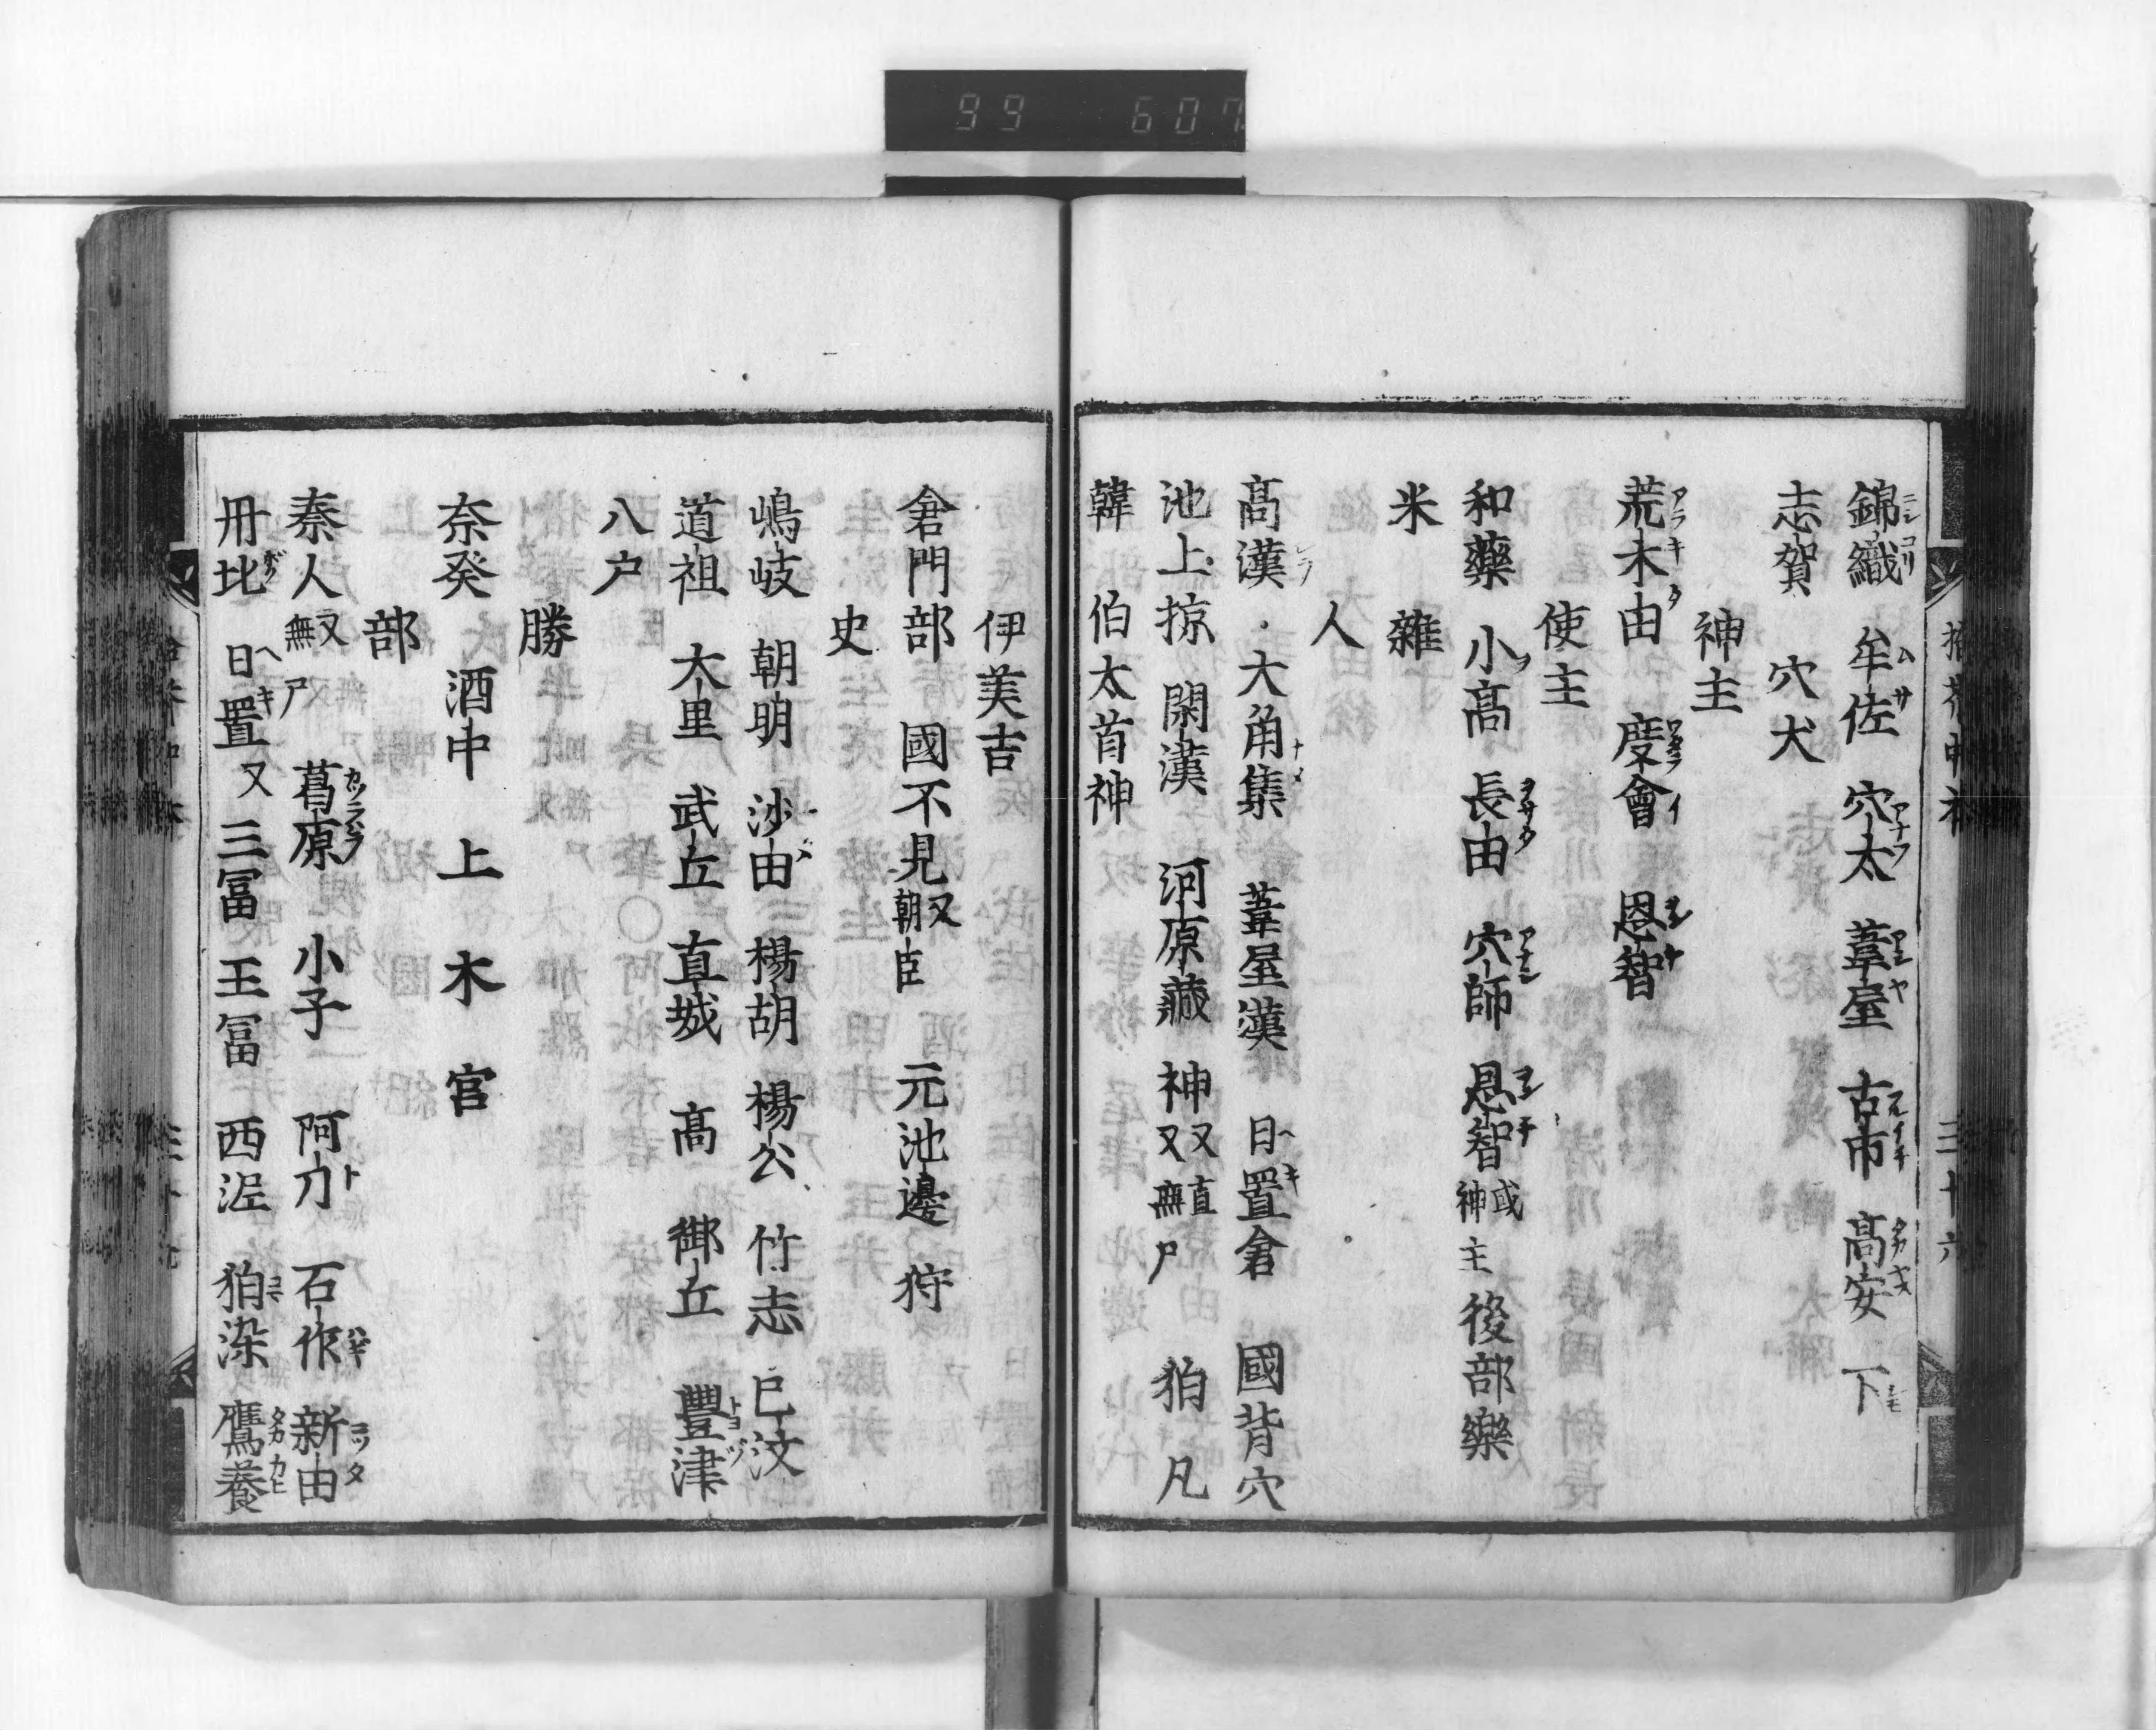 99 607
錦織 牟佐 穴太 葦屋 古市 髙安 下
志賀 穴犬
神主
荒木由 度會 恩智
使主
和藥 小髙 長由 穴師 恩智 或神主 後部樂
米 雜
人
髙漢 大角集 葦屋漢 日置倉 國背穴
池上掠 閑漢 河原藏 神 又直又無尸 狛 凡
韓 伯太首神
伊美吉
倉門部 國不見 又朝臣 元池邊 狩
史
嶋岐 朝明 沙由 楊胡 楊公 竹志 巳汶
道祖 太里 武丘 直城 髙 御丘 豐津
八户
勝
奈癸 酒中 上 木 官
部
秦人 又無尸 葛原 小子 阿刀 石作 新由
丹比 日置 又 三冨 王冨 西泥 狛染 鷹養